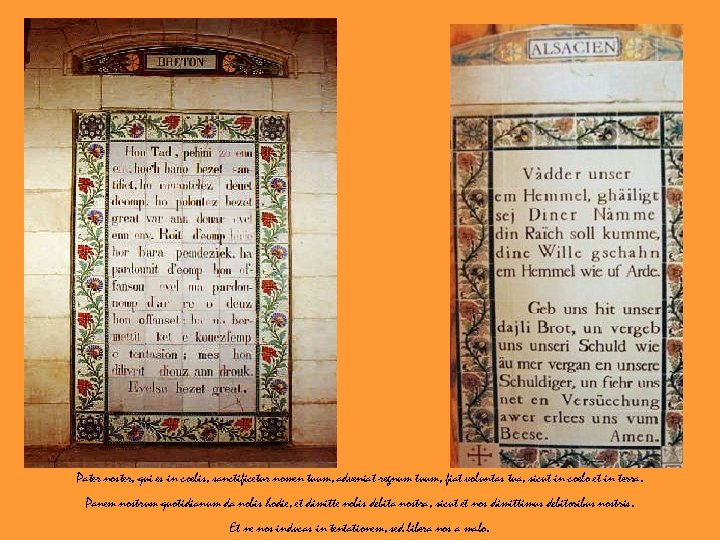 BRETON
Hon Tad, pehini zo enn
env, hoc'h hano bezet san-
tifiet, ho rouantelez deuet
deomp, ho polontez bezet
great var ann douar evel
enn env. Roit d'eomp hirio
hor bara pemdeziek, ha
pardounit d'eomp hon of-
fansou evel ma pardou-
nomp d'ar re o deuz
hon offanset; ha na ber-
mettit ket e kouezfemp
e tentasion; mes hon
dilivrit diouz ann drouk.
Evelse bezet great.
ALSACIEN
Vàdder unser
em Hemmel, ghäiligt
sej Diner Nàmme
din Raïch soll kumme,
dine Wille gschahn
em Hemmel wie uf Arde.
Geb uns hit unser
dajli Brot, un vergeb
uns unseri Schuld wie
äu mer vergan en unsere
Schuldiger, un fiehr uns
net en Versüechung
awer erlees uns vum
Beese. Amen.
Pater noster, qui es in coelis, sanctificetur nomen tuum, adveniat regnum tuum, fiat voluntas tua, sicut in coelo et in terra.
Panem nostrum quotidianum da nobis hodie, et dimitte nobis debita nostra, sicut et nos dimittimus debitoribus nostris.
Et ne nos inducas in tentationem, sed libera nos a malo.